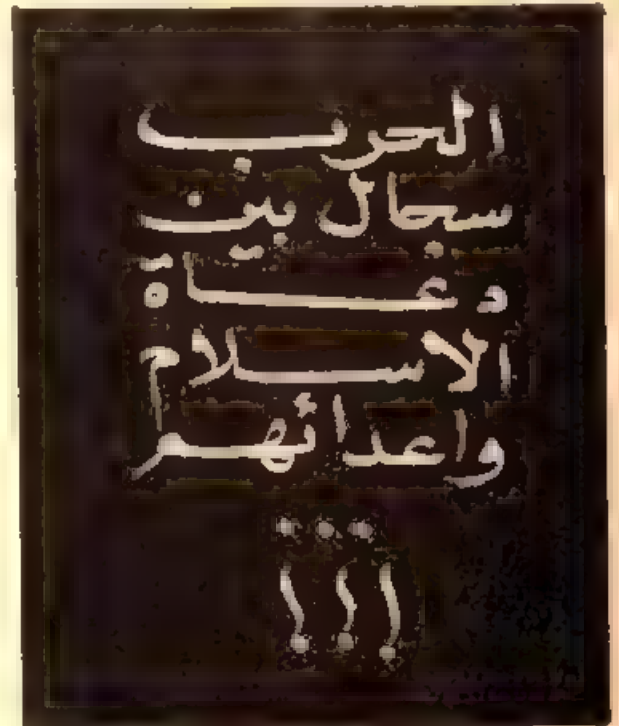 الحرب
سجال بين
دعاة
الاسلام
واعدائهم
...
!!!